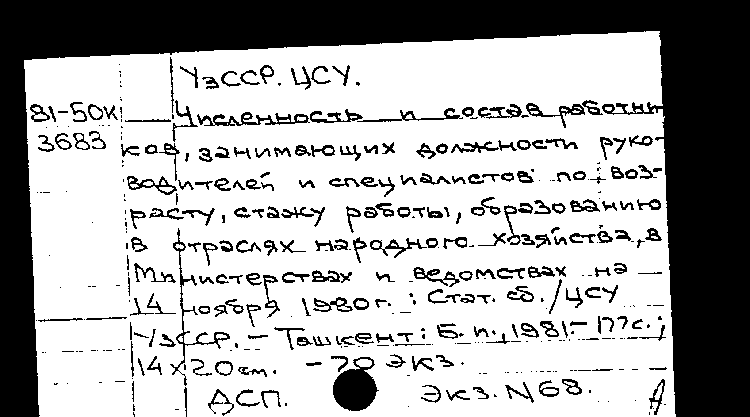 УзССР. ЦСУ.
81-50К Численность и состав работни
3683 ков, занимающих должности руко-
водителей и специалистов по воз-
расту, стажу работы, образованию
в отраслях народного хозяйства, в
министерствах и ведомствах на
14 ноября 1980г. : Стат. сб. / ЦСУ
УзССР. – Ташкент: Б. и., 1981.– 177с.;
14×20см. – 70 экз.
ДСП. Экз. N 68.